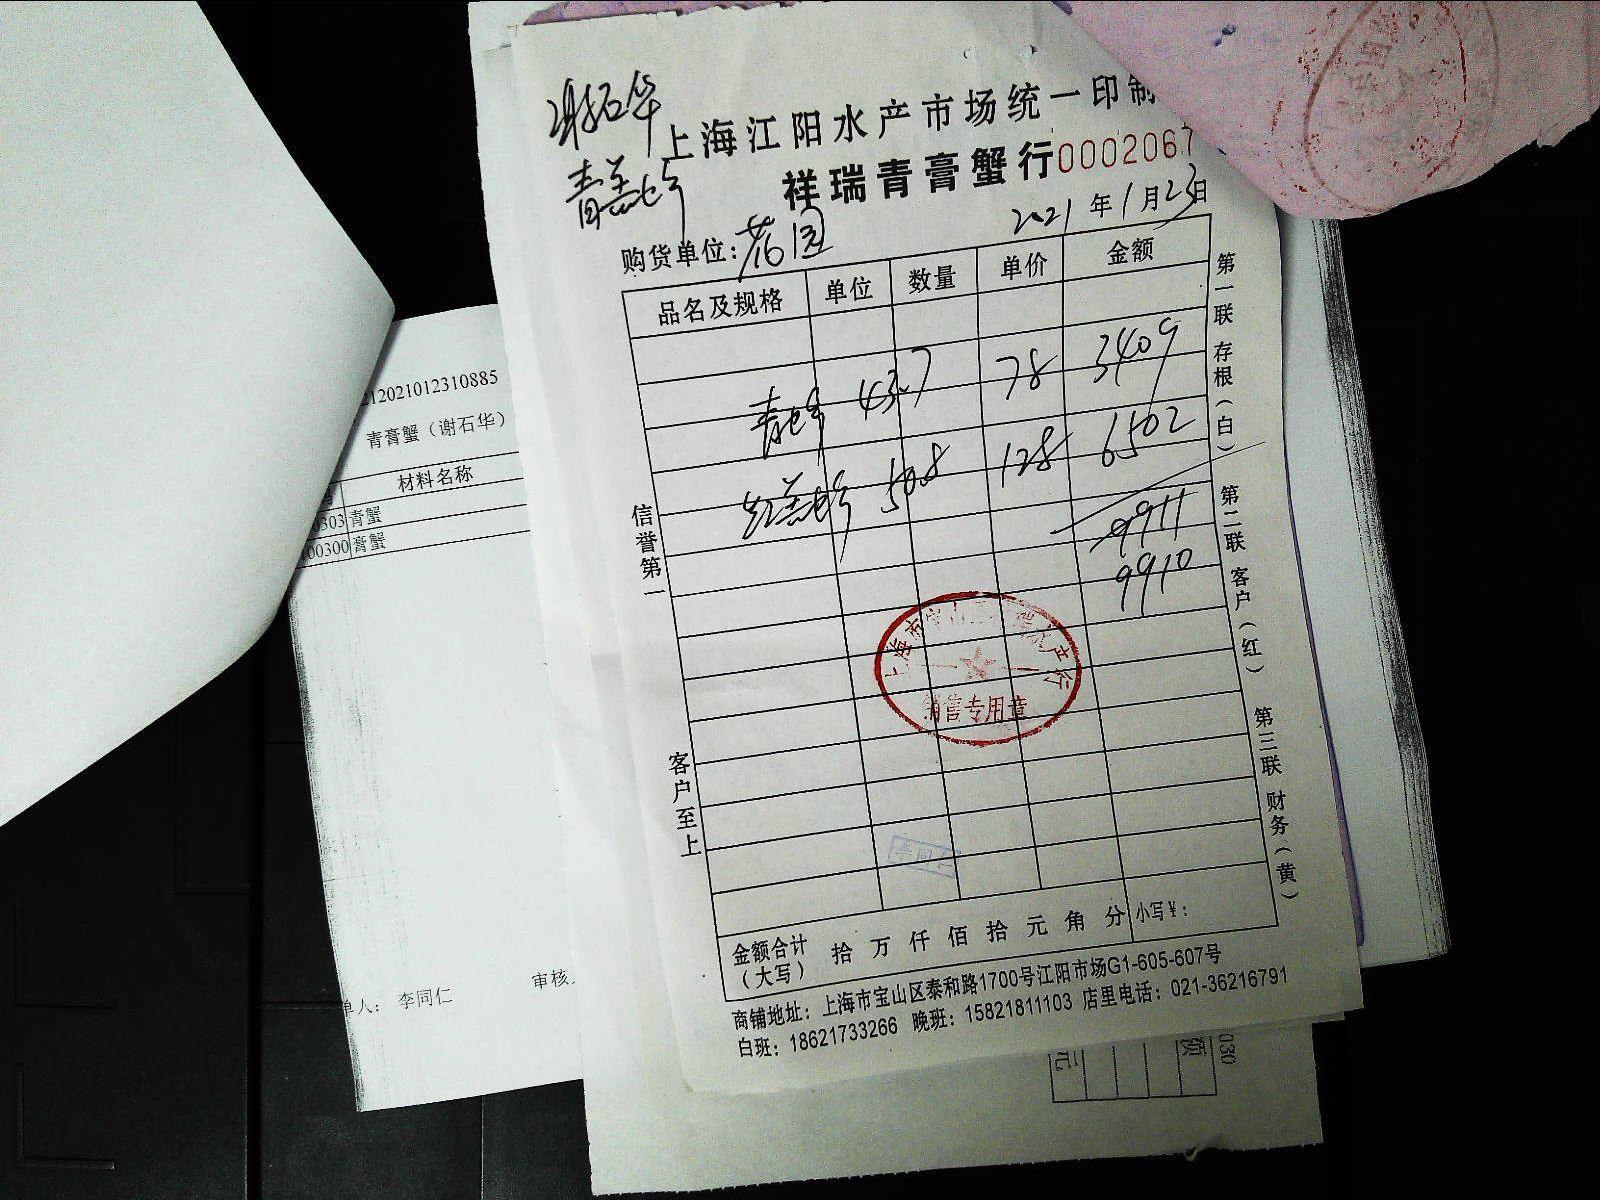 谢石华
青羔蟹
上海江阳水产市场统一印制
祥瑞青膏蟹行0002067
2021年1月23日
购货单位：花园
品名及规格 单位 数量 单价 金额
青蟹 43.7 78 3409
红羔蟹 50.8 128 6502
9911
9910
上海市宝山 水产行
销售专用章
金额合计（大写） 拾 万 仟 佰 拾 元 角 分 小写￥：
商铺地址：上海市宝山区泰和路1700号江阳市场G1-605-607号
白班：18621733266 晚班：15821811103 店里电话：021-36216791
信誉第一
客户至上
第一联 存根（白）
第二联 客户（红）
第三联 财务（黄）
2021012310885
青膏蟹（谢石华）
材料名称
0303 青蟹
00300 膏蟹
单人： 李同仁
审核
030